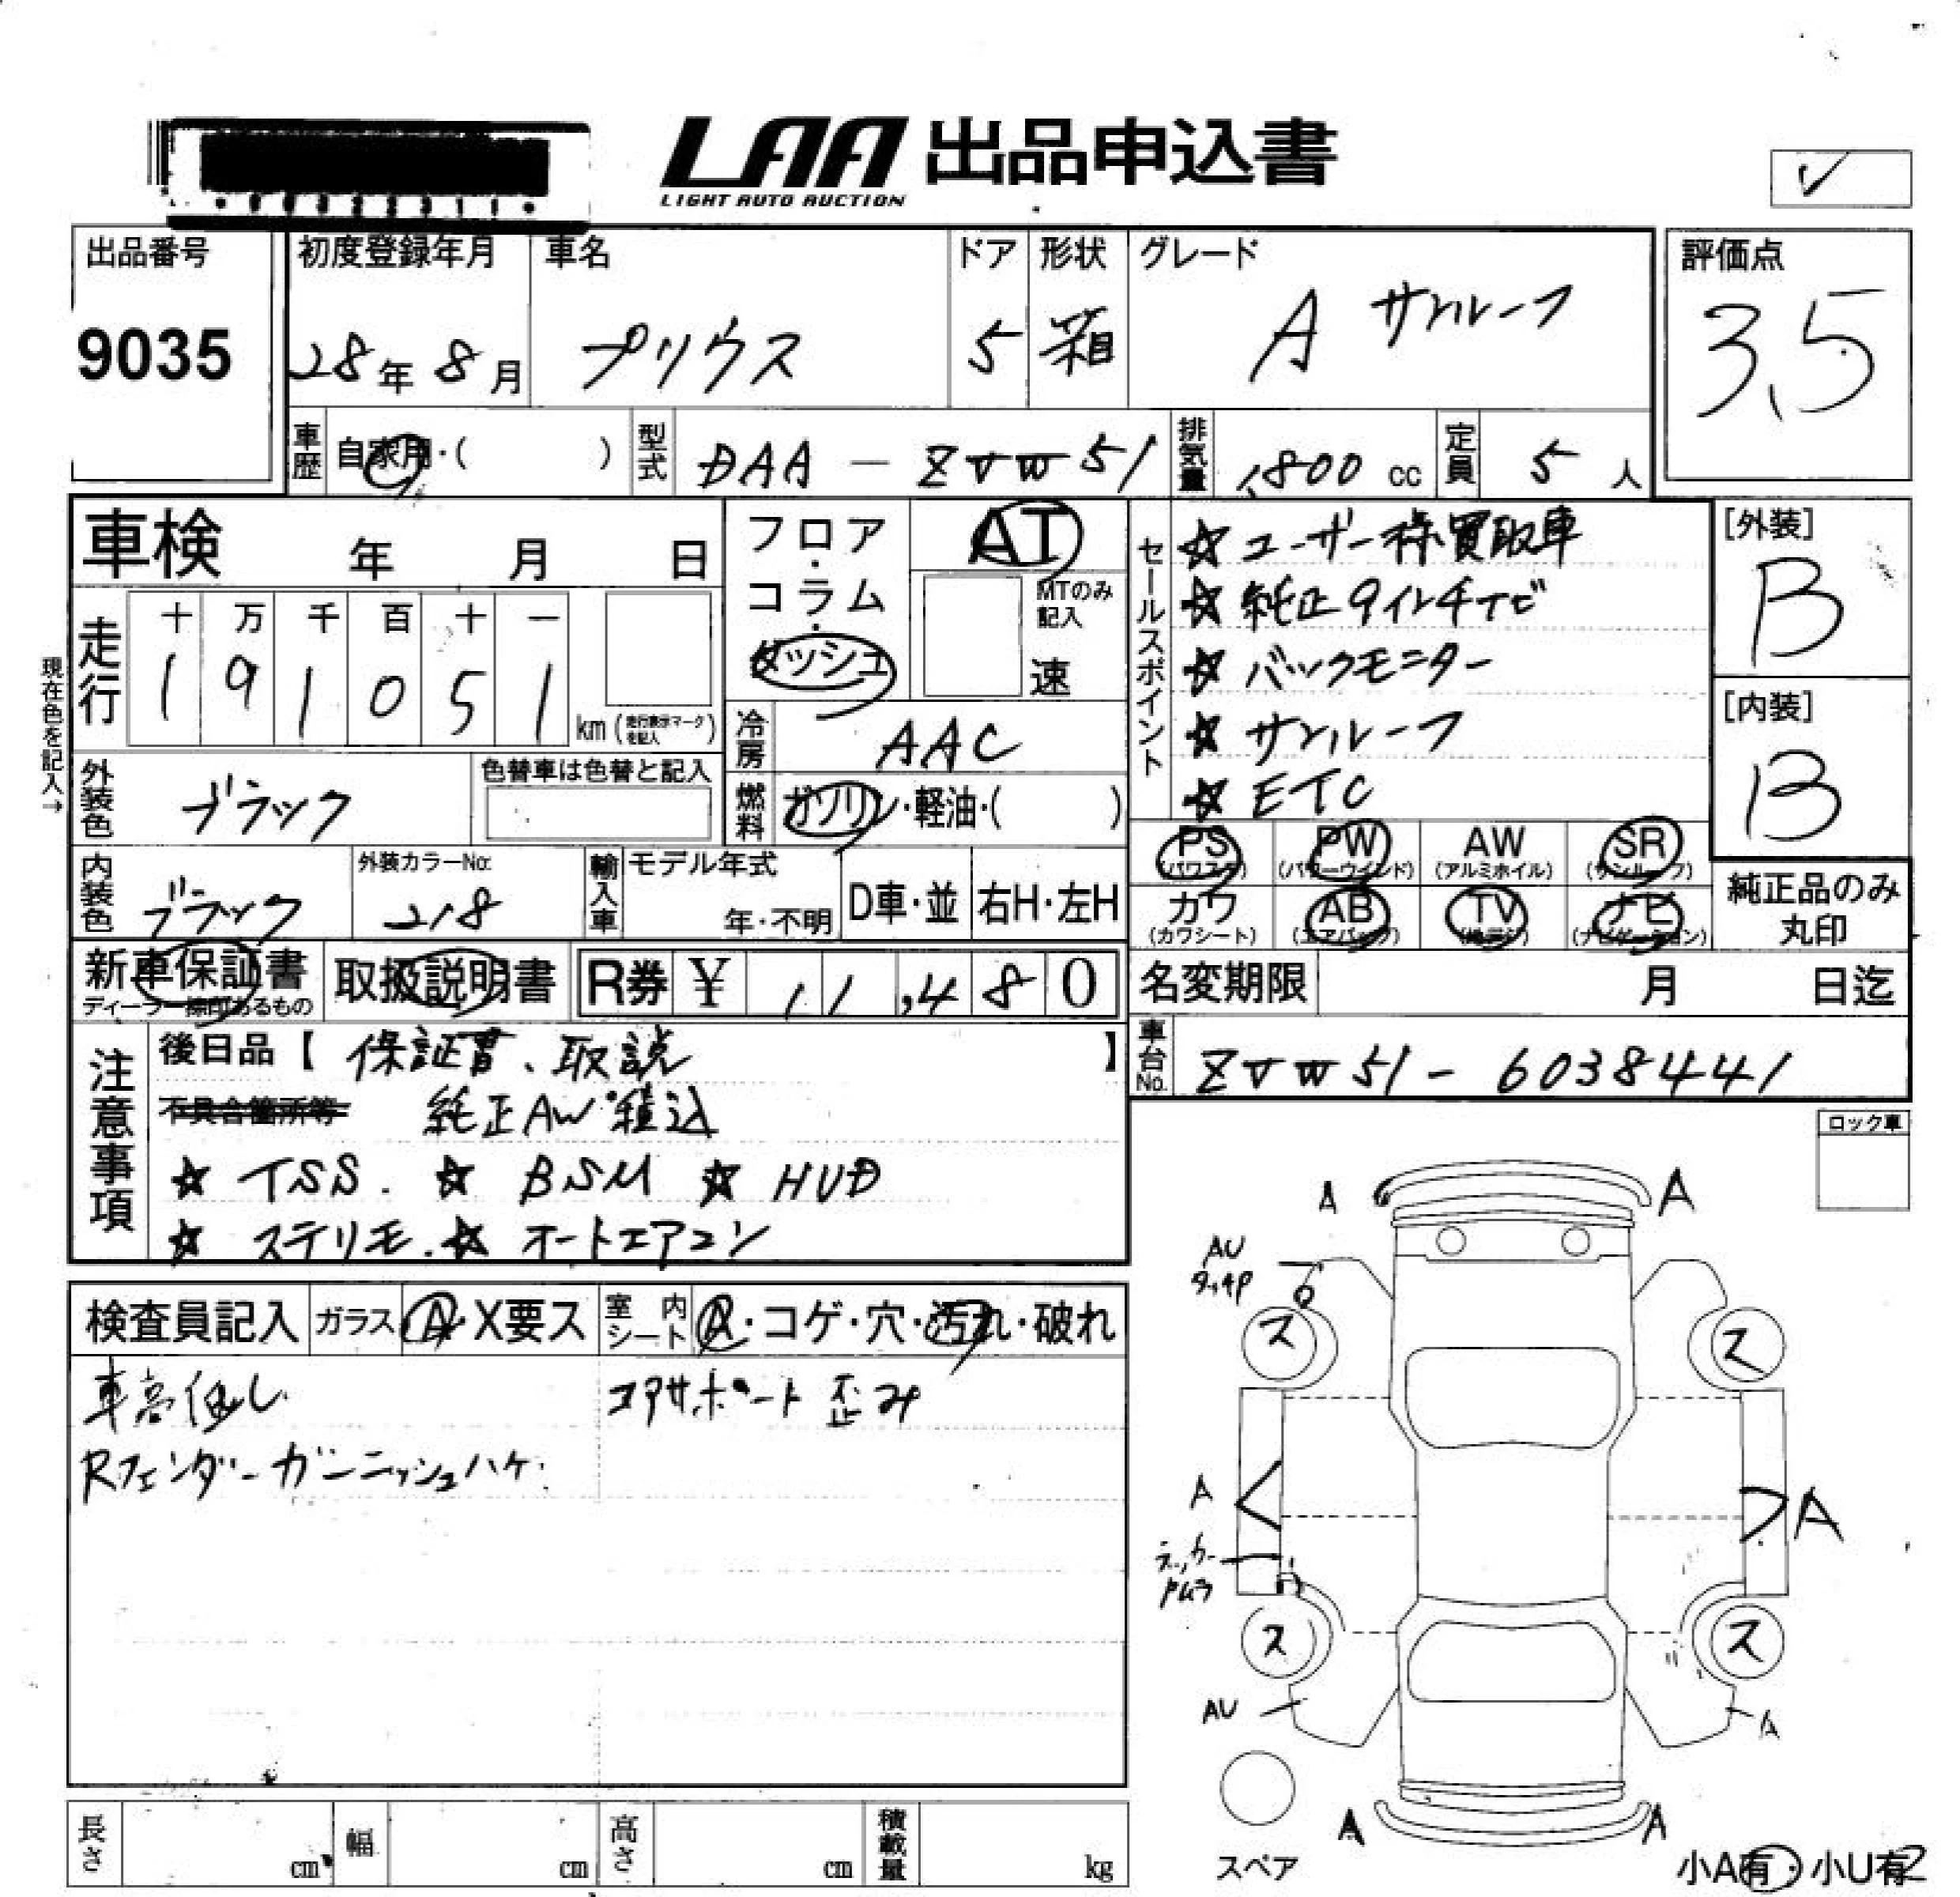 LAA 出品申込書
LIGHT AUTO AUCTION
出品番号
9035
初度登録年月
28年 8月
車名
プリウス
ドア
5
形状
箱
グレード
A サンルーフ
評価点
3.5
車歴 自家用・( )
型式 DAA - ZVW51
排気量 1,800 cc
定員 5 人
車検 年 月 日
現在色を記入→
走行
十 万 千 百 十 一
1 9 1 0 5 1
km (走行表示マークを記入)
フロア・コラム・ダッシュ
AT
MTのみ記入
速
冷房 AAC
燃料 ガソリン・軽油・( )
外装色 ブラック
色替車は色替と記入
内装色 ブラック
外装カラーNo.
218
輸入車 モデル年式
年・不明
D車・並 右H・左H
セールスポイント
☆ユーザー様買取車
☆純正9インチナビ
☆バックモニター
☆サンルーフ
☆ETC
[外装]
B
[内装]
B
PS (パワステ)
PW (パワーウインド)
AW (アルミホイル)
SR (サンルーフ)
カワ (カワシート)
AB (エアバッグ)
TV
ナビ (ナビゲーション)
純正品のみ
丸印
新車保証書
取扱説明書
R券 ¥ 11,480
名変期限 月 日迄
車台No. ZVW51-6038441
注意事項
後日品【 保証書、取説 】
不具合箇所等 純正AW積込
☆ TSS. ☆ BSM ☆ HUD
☆ ステリモ. ☆ オートエアコン
検査員記入
ガラス A・X要ス
室内シート A・コゲ・穴・汚れ・破れ
車高低し
コアサポート 歪み
Rフェンダーガーニッシュハケ
ロック車
A A
AU
タッチP
ス ス
A A
ステッカー
ス ス
AU A
A A
スペア
小A有・小U有2
長さ cm
幅 cm
高さ cm
積載量 kg